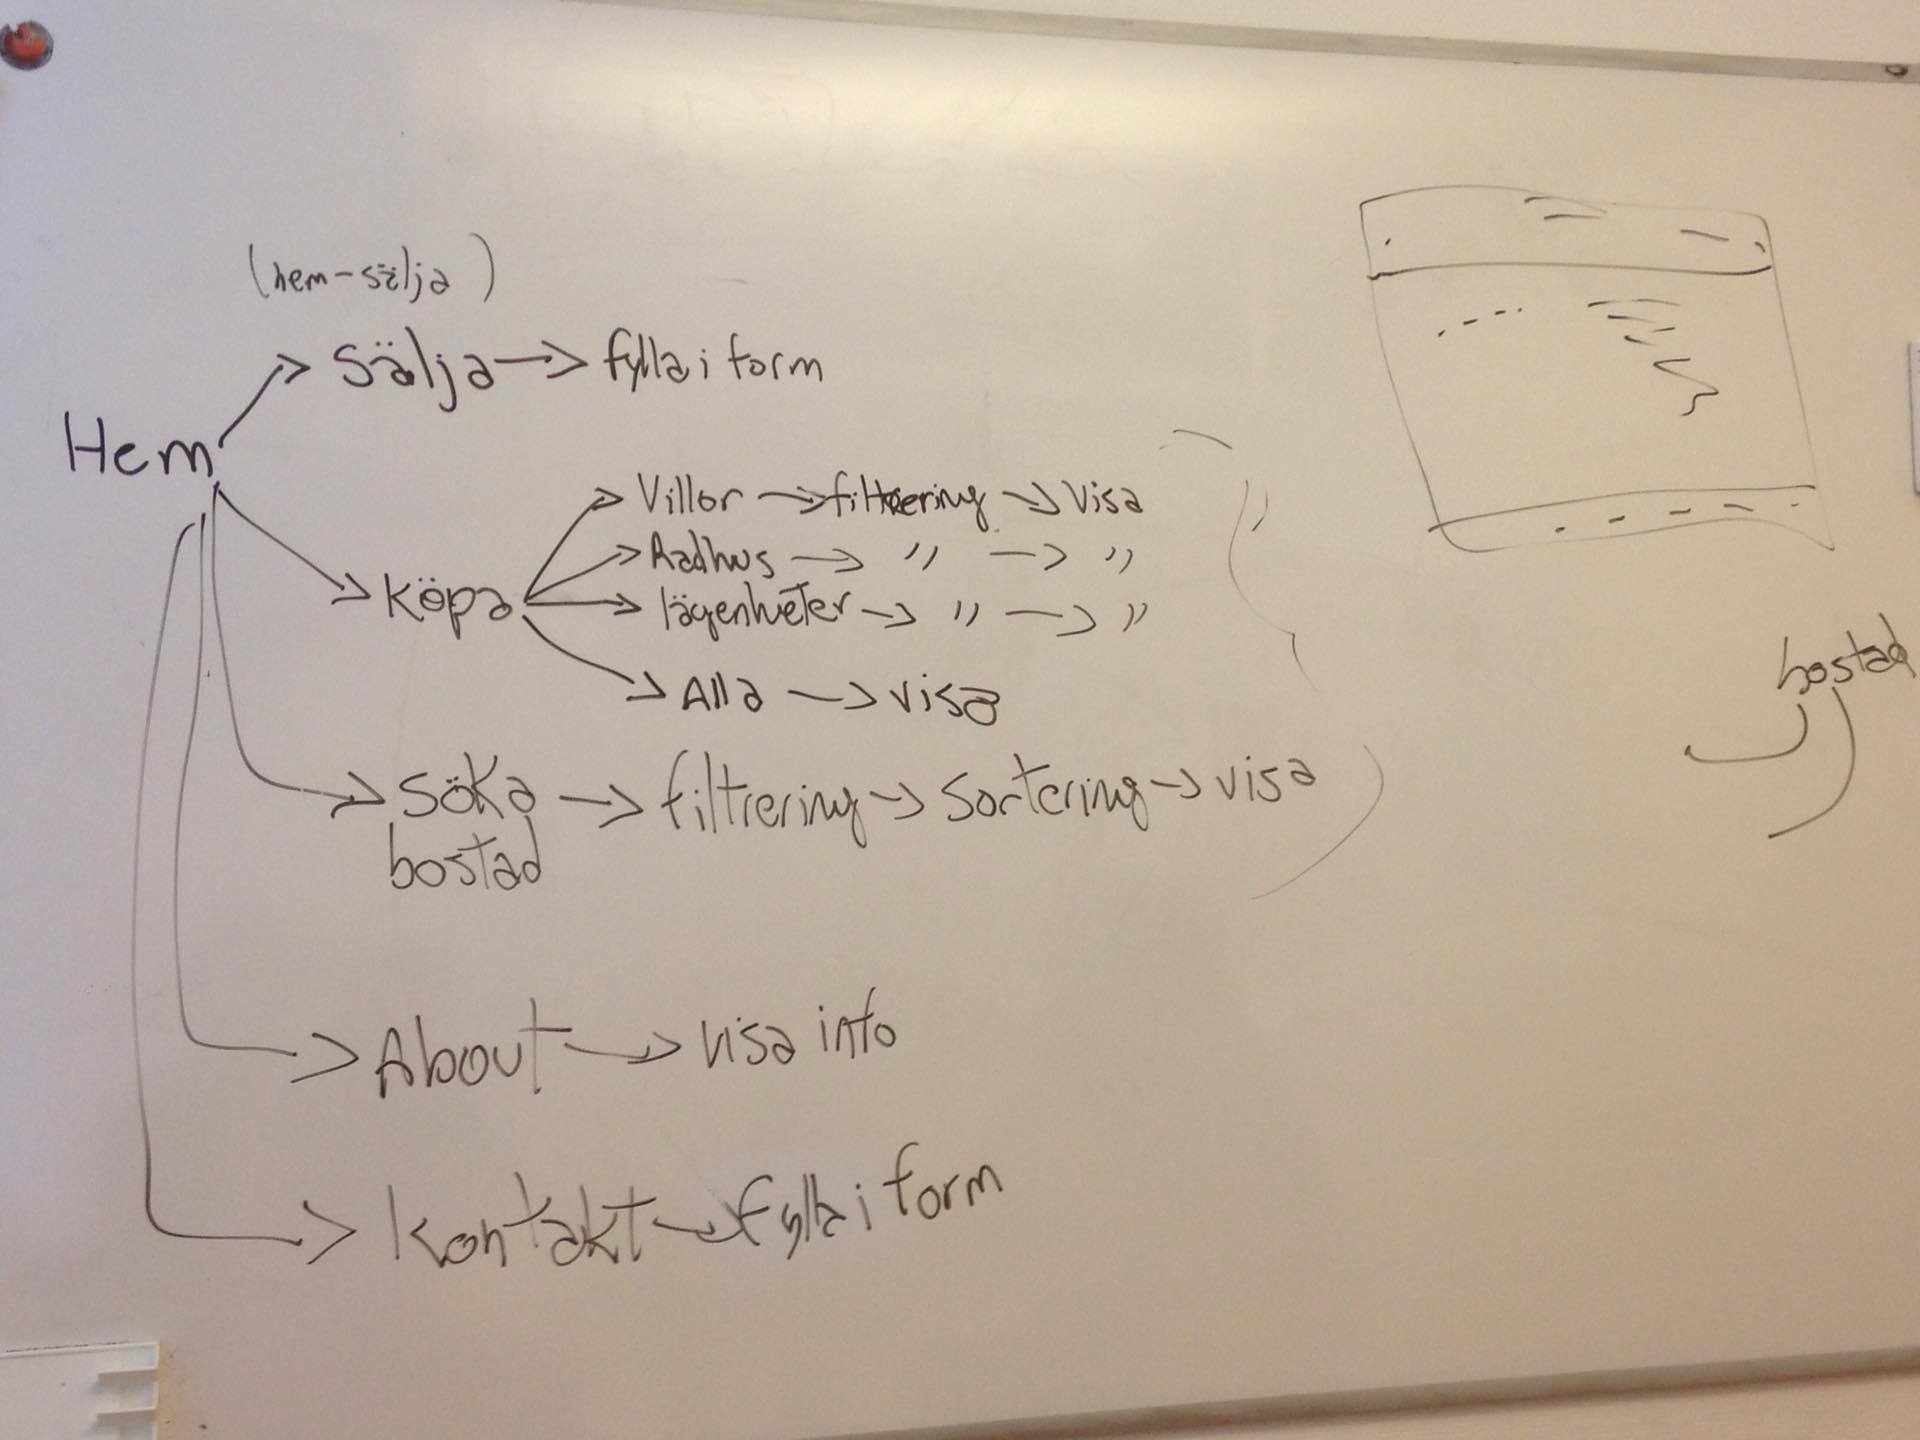 (hem-sälja)
Hem
Sälja → fylla i form
Köpa
Villor → filtrering → Visa
Radhus → " → "
lägenheter → " → "
Alla → visa
Söka bostad → filtrering → Sortering → visa
About → visa info
Kontakt → fylla i form
bostad